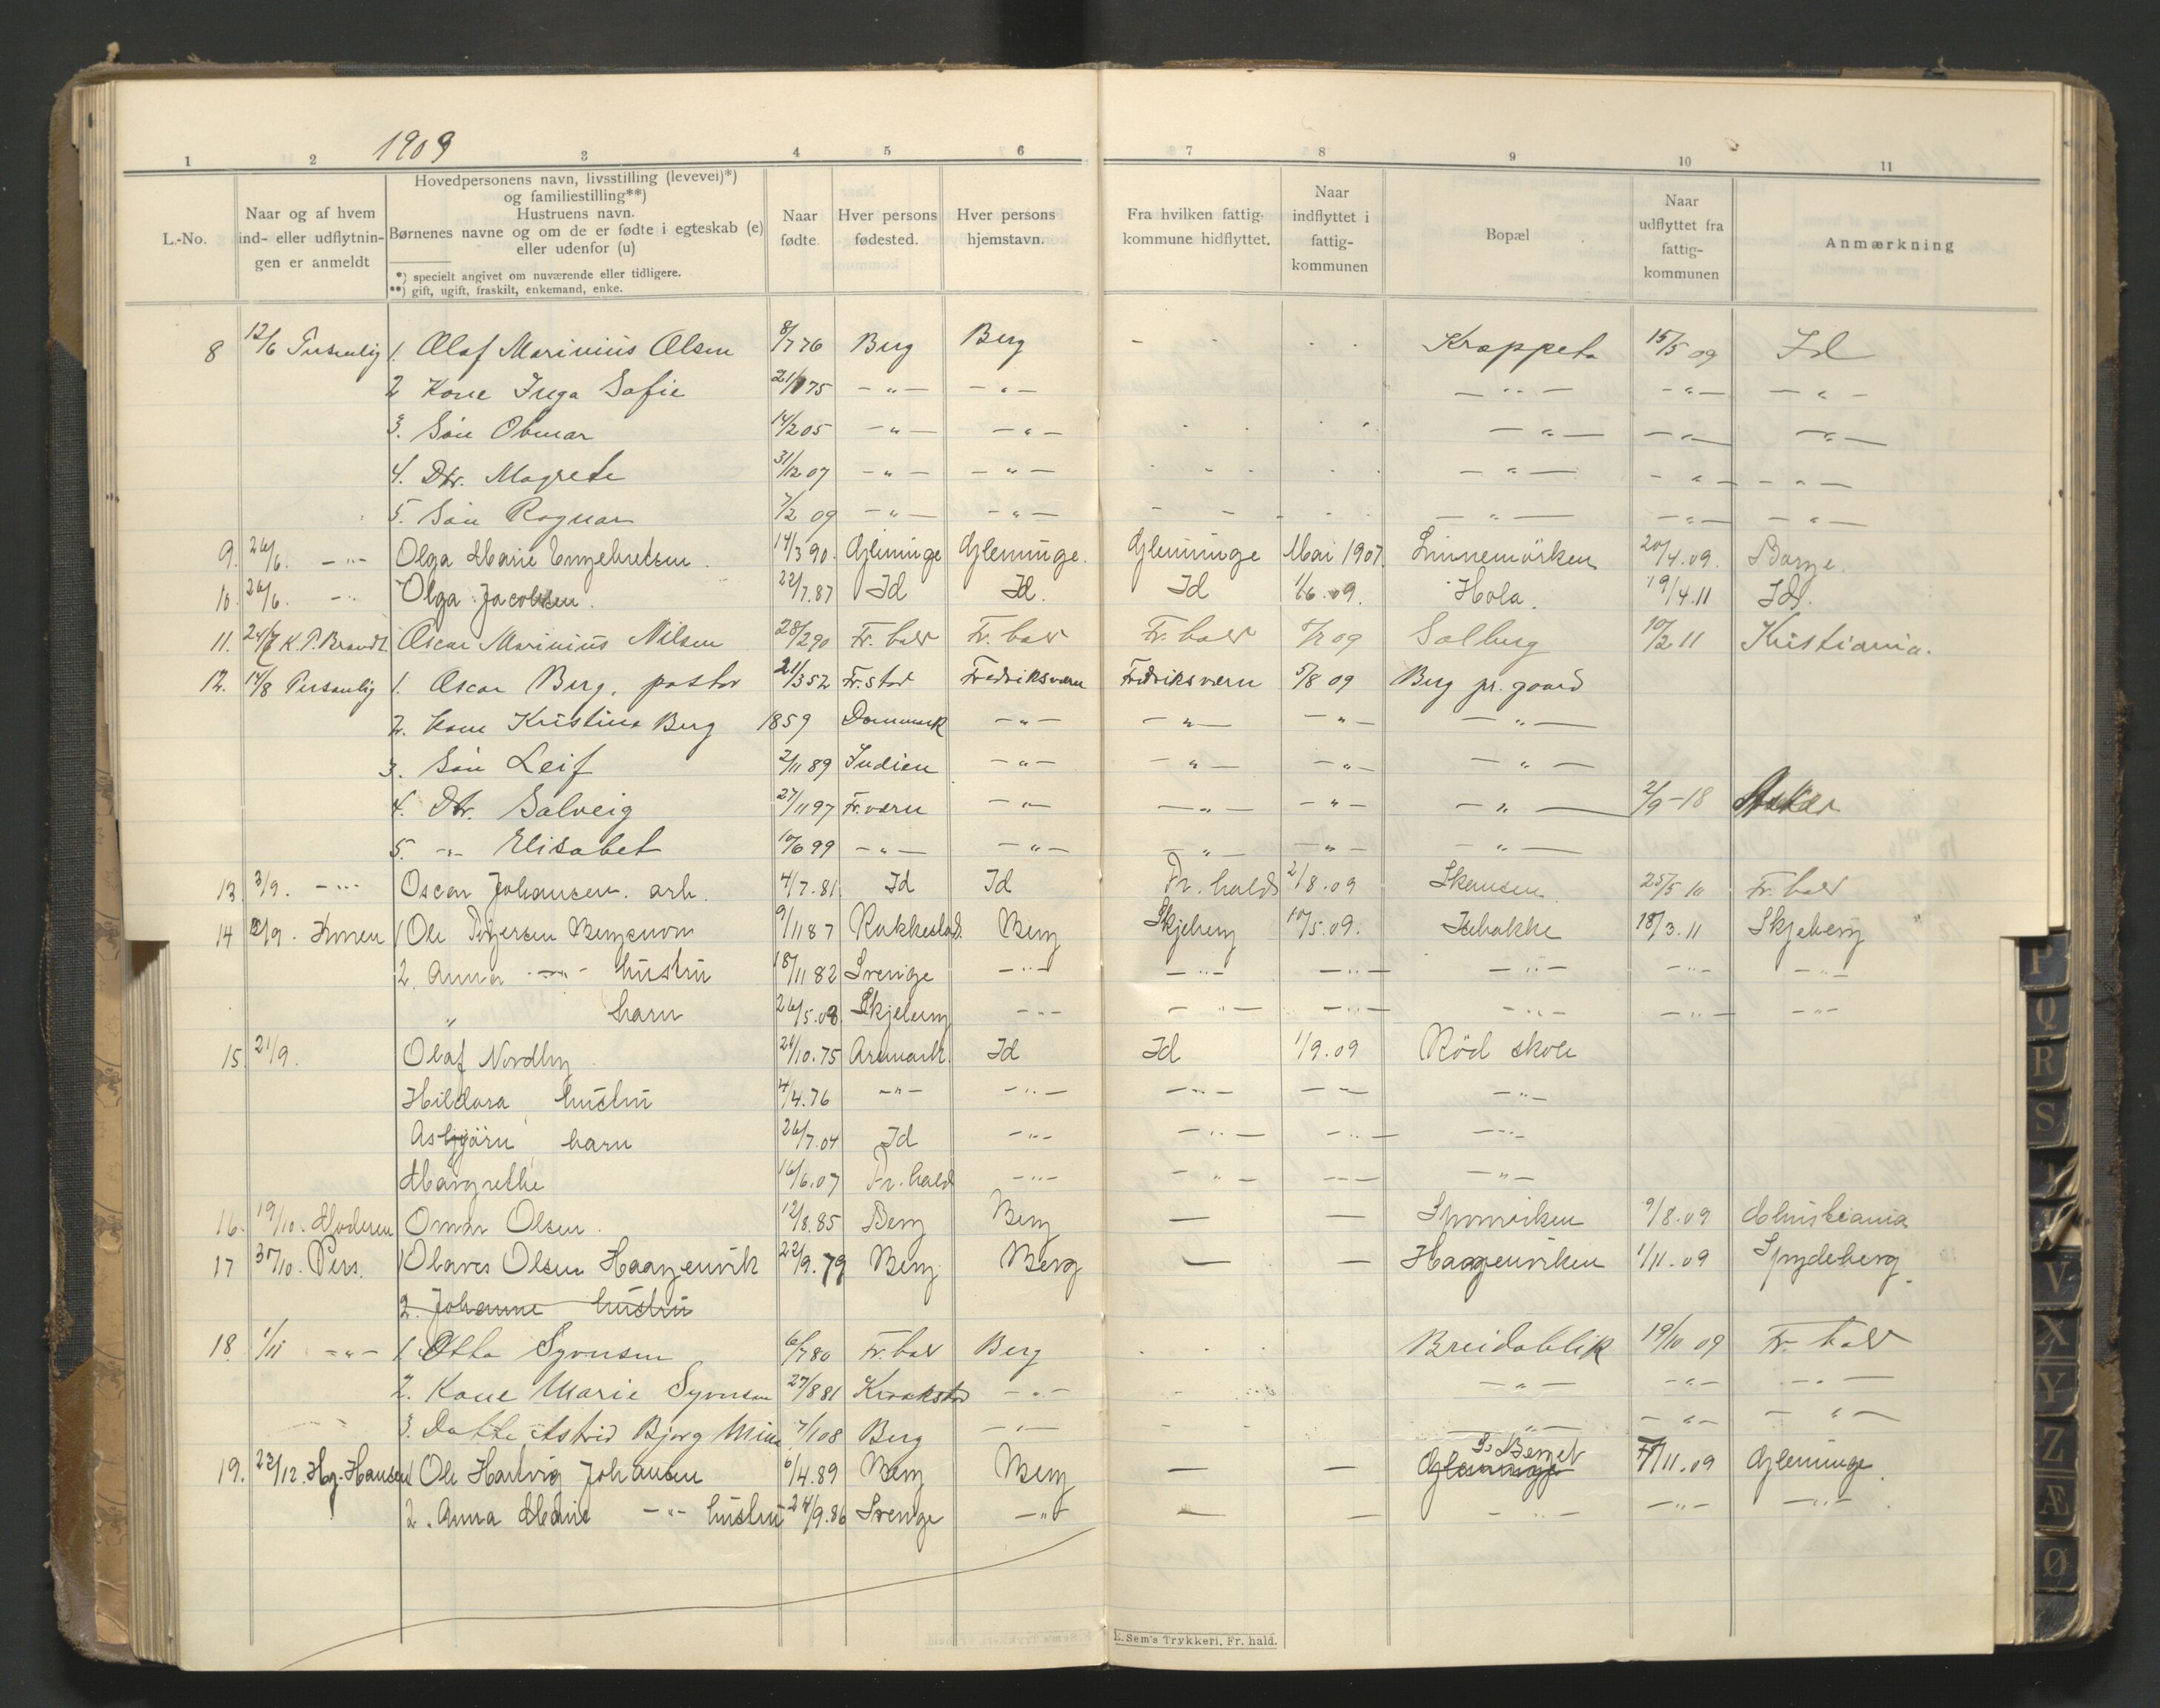 1909
1 2 3 4 5 6 7 8 9 10 11
L.-No.
Naar og af hvem ind- eller udflytnin- gen er anmeldt
Hovedpersonens navn, livsstilling (levevei)*)
og familiestilling**)
Hustruens navn.
Børnenes navne og om de er fødte i egteskab (e)
eller udenfor (u)
*) specielt angivet om nuværende eller tidligere.
**) gift, ugift, fraskilt, enkemand, enke.
Naar fødte.
Hver persons fødested.
Hver persons hjemstavn.
Fra hvilken fattig- kommune hidflyttet.
Naar indflyttet i fattig- kommunen
Bopæl
Naar udflyttet fra fattig- kommunen
Anmærkning
8 12/6 Personlig 1. Olaf Marinius Olsen 8/7 76 Berg Berg - - - - Krappeto 15/5 09 Id
2 Kone Inga Sofie 21/1 75 -"- -"- -"- -"- -"-
3. Søn Otmar 14/2 05 -"- -"- - - - - -"- -"- -"-
4. Dtr. Magrete 31/12 07 -"- -"- - - - - -"- -"- -"-
5. Søn Ragnar 7/2 09 -"- -"- - - - - -"- -"- -"-
9. 26/6. -"- Olga Marie Engebretsen. 14/3 90. Glemminge Glemminge. Glemminge Mai 1907. Linnemörken 20/4.09. Borge.
10. 26/6. -"- Olga Jacobsen. 22/7.87 Id Id. Id 1/6.09. Hola. 19/4.11 Id.
11. 24/7 K.P. Brandt. Oscar Marinius Nilsen 28/2 90 Fr. hald Fr. hald Fr. hald 5/7 09 Solberg 10/2 11 Kristiania.
12. 14/8 Personlig 1. Oscar Berg, pastor 21/3 52 Fr. stad Fredriksværn Fredriksværn 5/8 09 Berg pr. gaard
2. Kone Kristina Berg 1859 Danmark -"- -"- -"- -"-
3. Søn Leif 2/11 89 Indien -"- -"- -"- -"-
4. Dtr. Solveig 27/11 97 Fr. værn -"- -"- -"- -"- 2/9-18 Asker
5. -"- Elisabet 10/6 99 -"- -"- -"- -"- -"-
13. 3/9. -"- Oscar Johansen. arb. 4/7.81. Id Id Fr. hald 2/8.09 Skansen 25/5 10 Fr. hald
14 /9. Konen 1 Ole Bergsnom 9/11 87 Rakkestad. Berg Skjeberg 10/5.09. Isebakke 18/3.11 Skjeberg "
2. Anna -"- hustru 18/11 82 Sverige -"- -"- -"- -"- -"- -"-
" barn 26/5.08. Skjeberg -"- -"- -"- -"- -"- -"-
15. 21/9. Olaf Nordby. 24/10.75 Aremark. Id Id 1/9.09 Röd skole
Hildora, hustru 4/4.76 -"- -"- -"- -"- -"-
Asbjørn, barn 26/7.04 Id -"- -"- -"- -"-
Margrethe 16/6.07 Fr. hald -"- -"- -"- -"-
16. 19/10. Moderen Omar Olsen. 12/8.85 Berg Berg — — Sponviken 9/8.09 Christiania
17 30/10. Pers. 1 Olaves Olsen Haagenvik 22/9.79 Berg Berg — — Haagenviken 1/11.09 Spydeberg.
2. Johanne hustru
18. 1/11 -"- 1. Otto Syvnsen 6/7 80 Fr. hald Berg - - - Breidablik 19/10 09 Fr. hald
2. Kone Marie Syvnsen 27/8 81 Kraakstad -"- - - -"- -"- -"-
3. Datter Astrid Bjørg 7/1 08 Berg -"- - - -"- -"- -"-
19. 22/12. Hg. Hansen 1 Ole Hartvig Johansen 6/4.89 Berg Berg — — Glemminge /11.09 Glemminge.
2. Anna Marie -"- hustru 24/9.86 Sverige -"- — — -"- -"- -"-.
E. Sem's Trykkeri, Fr. hald.
P
Q
R
S
V
X
Y
Z
Æ
Ø